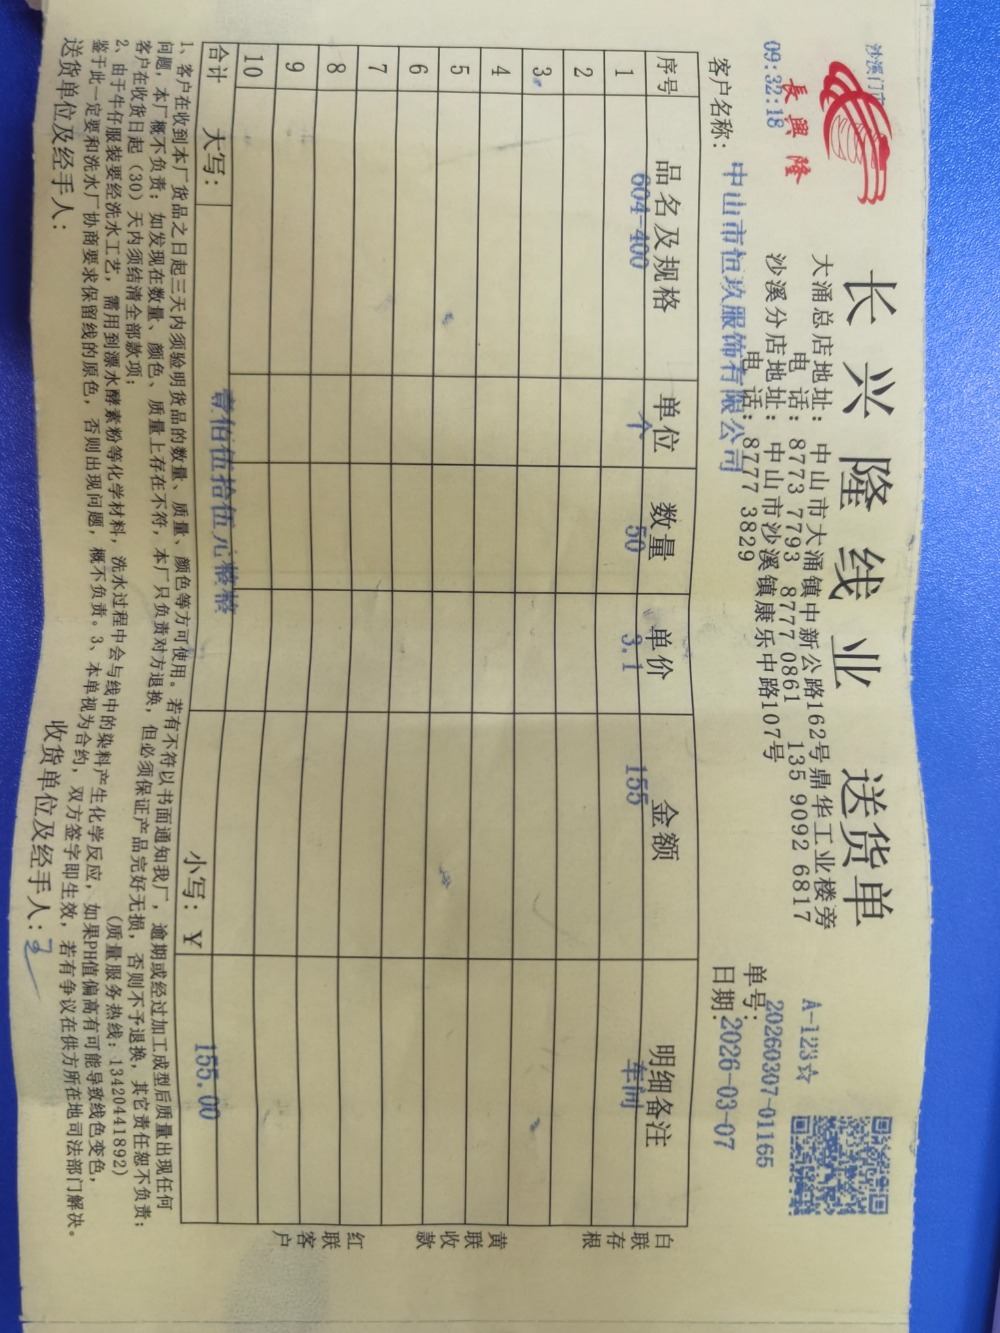 沙溪门市
09:32:18
長興隆
长兴隆线业 送货单
大涌总店地址：中山市大涌镇中新公路162号鼎华工业楼旁
电 话：8773 7793 8777 0861 135 9092 6817
沙溪分店地址：中山市沙溪镇康乐中路107号
电 话：8777 3829
A-123☆
单号：20260307-01165
客户名称：中山市恒玖服饰有限公司
日期：2026-03-07
序号 品名及规格 单位 数量 单价 金额 明细备注
1 604-400 个 50 3.1 155 车间
2
3
4
5
6
7
8
9
10
合计 大写：壹佰伍拾伍元整 小写：¥ 155.00
白联存根
黄联收款
红联客户
1、客户在收到本厂货品之日起三天内须验明货品的数量、质量、颜色等方可使用。若有不符以书面通知我厂，逾期或经过加工成型后质量出现任何
问题，本厂概不负责；如发现在数量、颜色、质量上存在不符，本厂只负责对方退换，但必须保证产品完好无损，否则不予退换，其它责任恕不负责；
客户在收货日起（30）天内须结清全部款项； （质量服务热线：13420441892）
2、由于牛仔服装要经洗水工艺，需用到漂水酵素粉等化学材料，洗水过程中会与线中的染料产生化学反应，如果PH值偏高有可能导致线色变色，
鉴于此一定要和洗水厂协商要求保留线的原色，否则出现问题，概不负责。3、本单视为合约，双方签字即生效，若有争议在供方所在地司法部门解决。
送货单位及经手人： 收货单位及经手人：